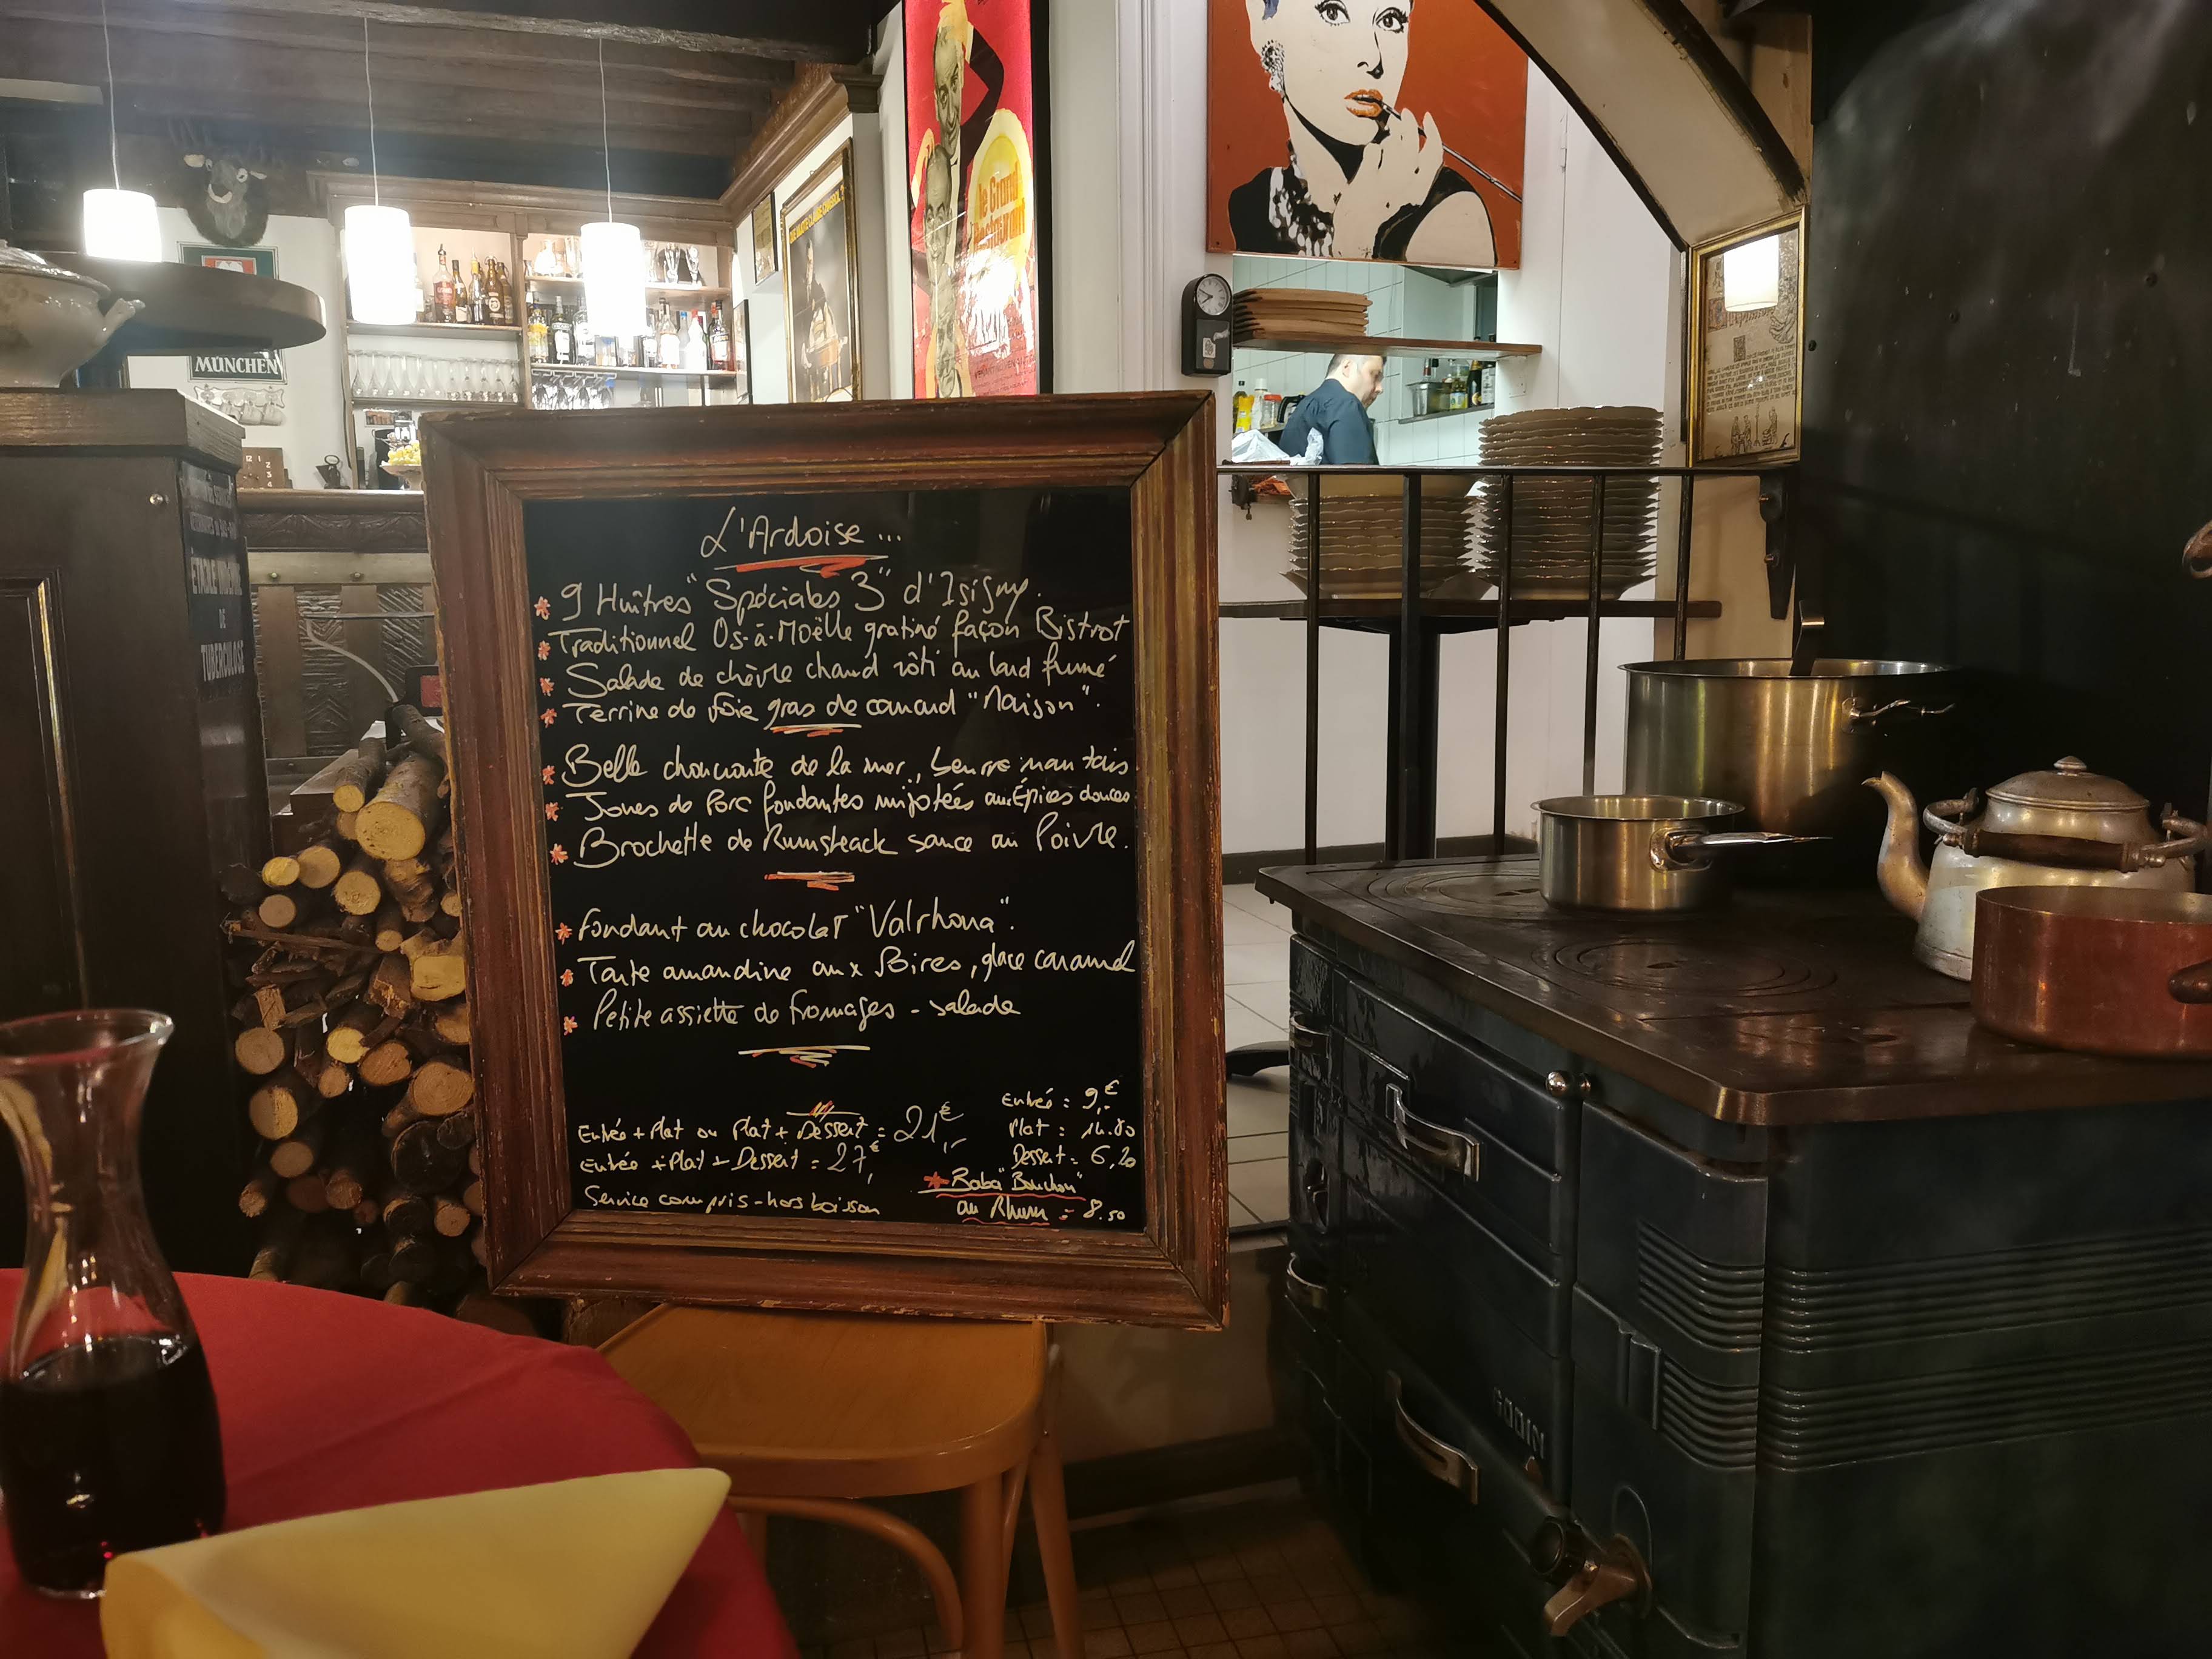 MÜNCHEN
le Grand
Restaurant
L'Ardoise...
* 9 Huîtres "Spéciales 3" d'Isigny.
* Traditionnel Os-à-Moëlle gratiné façon Bistrot
* Salade de chèvre chaud rôti au lard fumé
* Terrine de foie gras de canard "Maison".
* Belle choucroute de la mer, beurre nantais.
* Joues de Porc fondantes mijotées aux Épices douces
* Brochette de Rumsteack sauce au Poivre.
* Fondant au chocolat "Valrhona".
* Tarte amandine aux Poires, glace caramel
* Petite assiette de fromages - salade
Entrée + Plat ou Plat + Dessert = 21,-€
Entrée + Plat + Dessert = 27,€
Service compris - hors boisson
Entrée : 9,-€
Plat : 14.80
Dessert : 6,20
* Baba "Bouchon"
au Rhum = 8.50
DE
TUBERCULOSE
GODIN